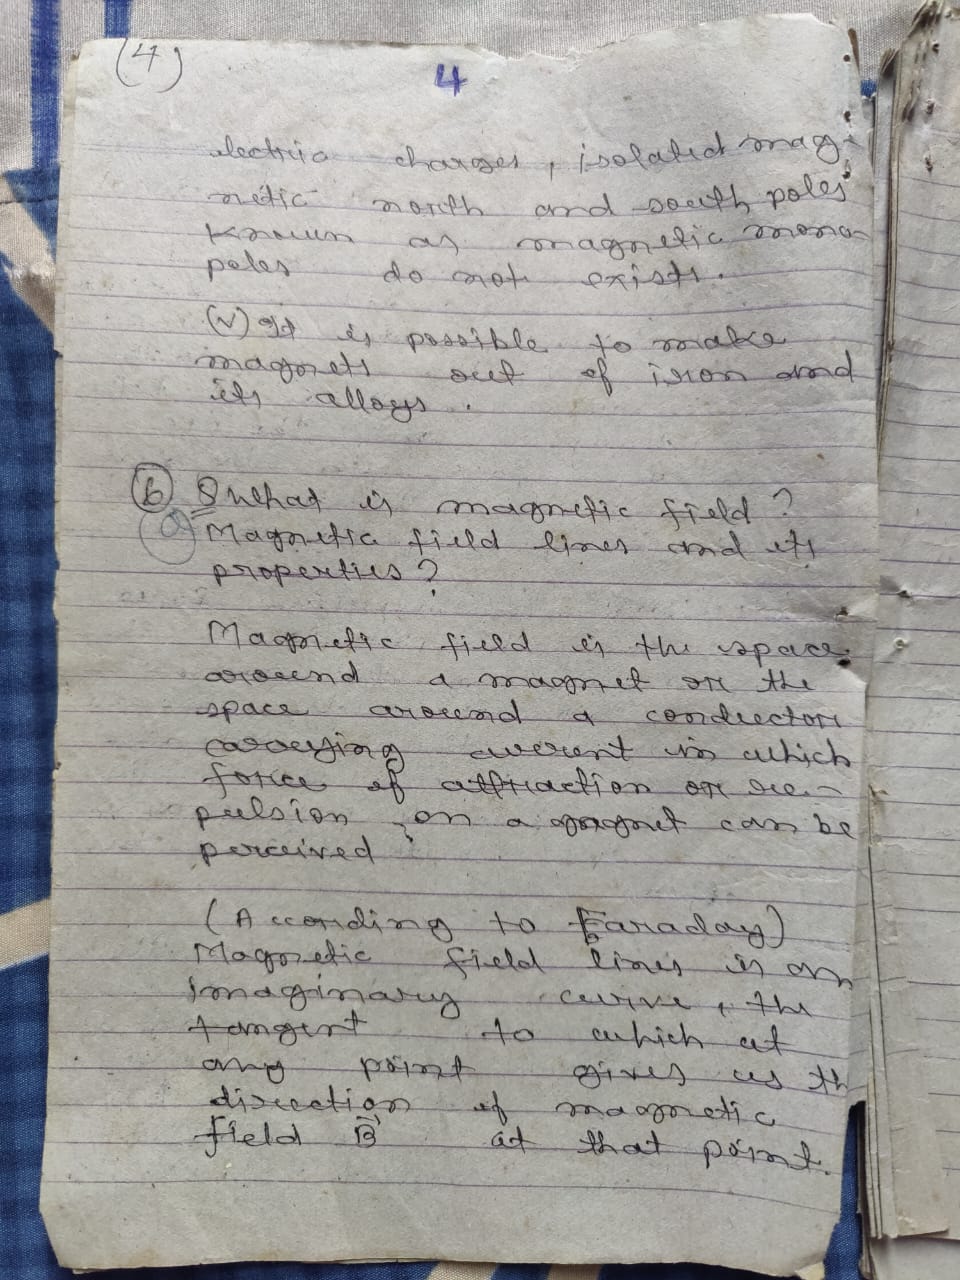 (4)
4
electric charges, isolated mag-
netic north and south poles
known as magnetic mono-
poles do not exists.
(v) It is possible to make
magnets out of iron and
its alloys.
(6) Q What is magnetic field?
(a) Magnetic field lines and its
properties?
Magnetic field is the space
around a magnet or the
space around a conductor
carrying current in which
force of attraction or re-
pulsion on a magnet can be
perceived.
(According to Faraday)
Magnetic field lines is an
imaginary curve, the
tangent to which at
any point gives us th
direction of magnetic
field B⃗ at that point.